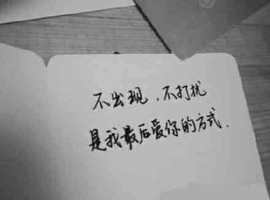 不出现，不打扰
是我最后爱你的方式.